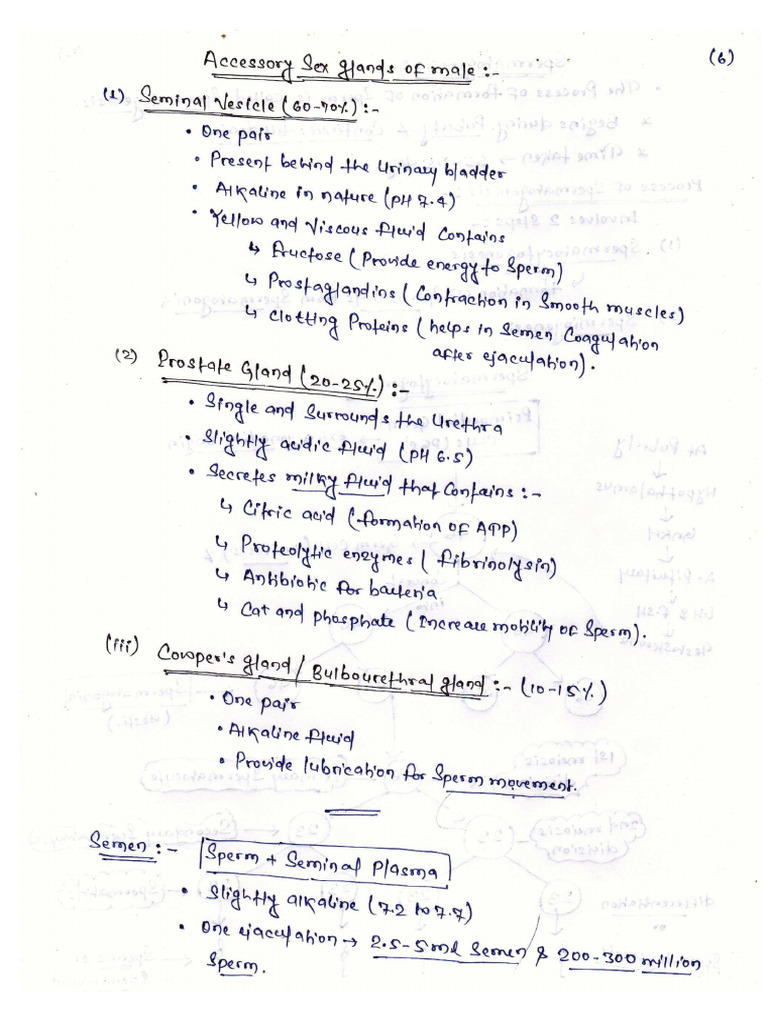 Accessory Sex glands of male :-
(6)
(1) Seminal Vesicle (60-70%) :-
• One pair
• Present behind the urinary bladder
• Alkaline in nature (pH 7.4)
• Yellow and Viscous fluid Contains
↳ fructose (Provide energy to Sperm)
↳ Prostaglandins (Contraction in Smooth muscles)
↳ Clotting Proteins (helps in Semen Coagulation
after ejaculation).
(2) Prostate Gland (20-25%) :-
• Single and Surrounds the Urethra
• Slightly acidic fluid (pH 6.5)
• Secretes milky fluid that Contains :-
↳ Citric acid (formation of ATP)
↳ Proteolytic enzymes (fibrinolysin)
↳ Antibiotic for bacteria
↳ Cat and phosphate (Increase mobility of Sperm).
(iii) Cowper's gland / Bulbourethral gland :- (10-15%)
• One pair
• Alkaline fluid
• Provide lubrication for Sperm movement.
Semen :- Sperm + Seminal Plasma
• Slightly alkaline (7.2 to 7.7)
• One ejaculation → 2.5-5ml Semen & 200-300 million
Sperm.